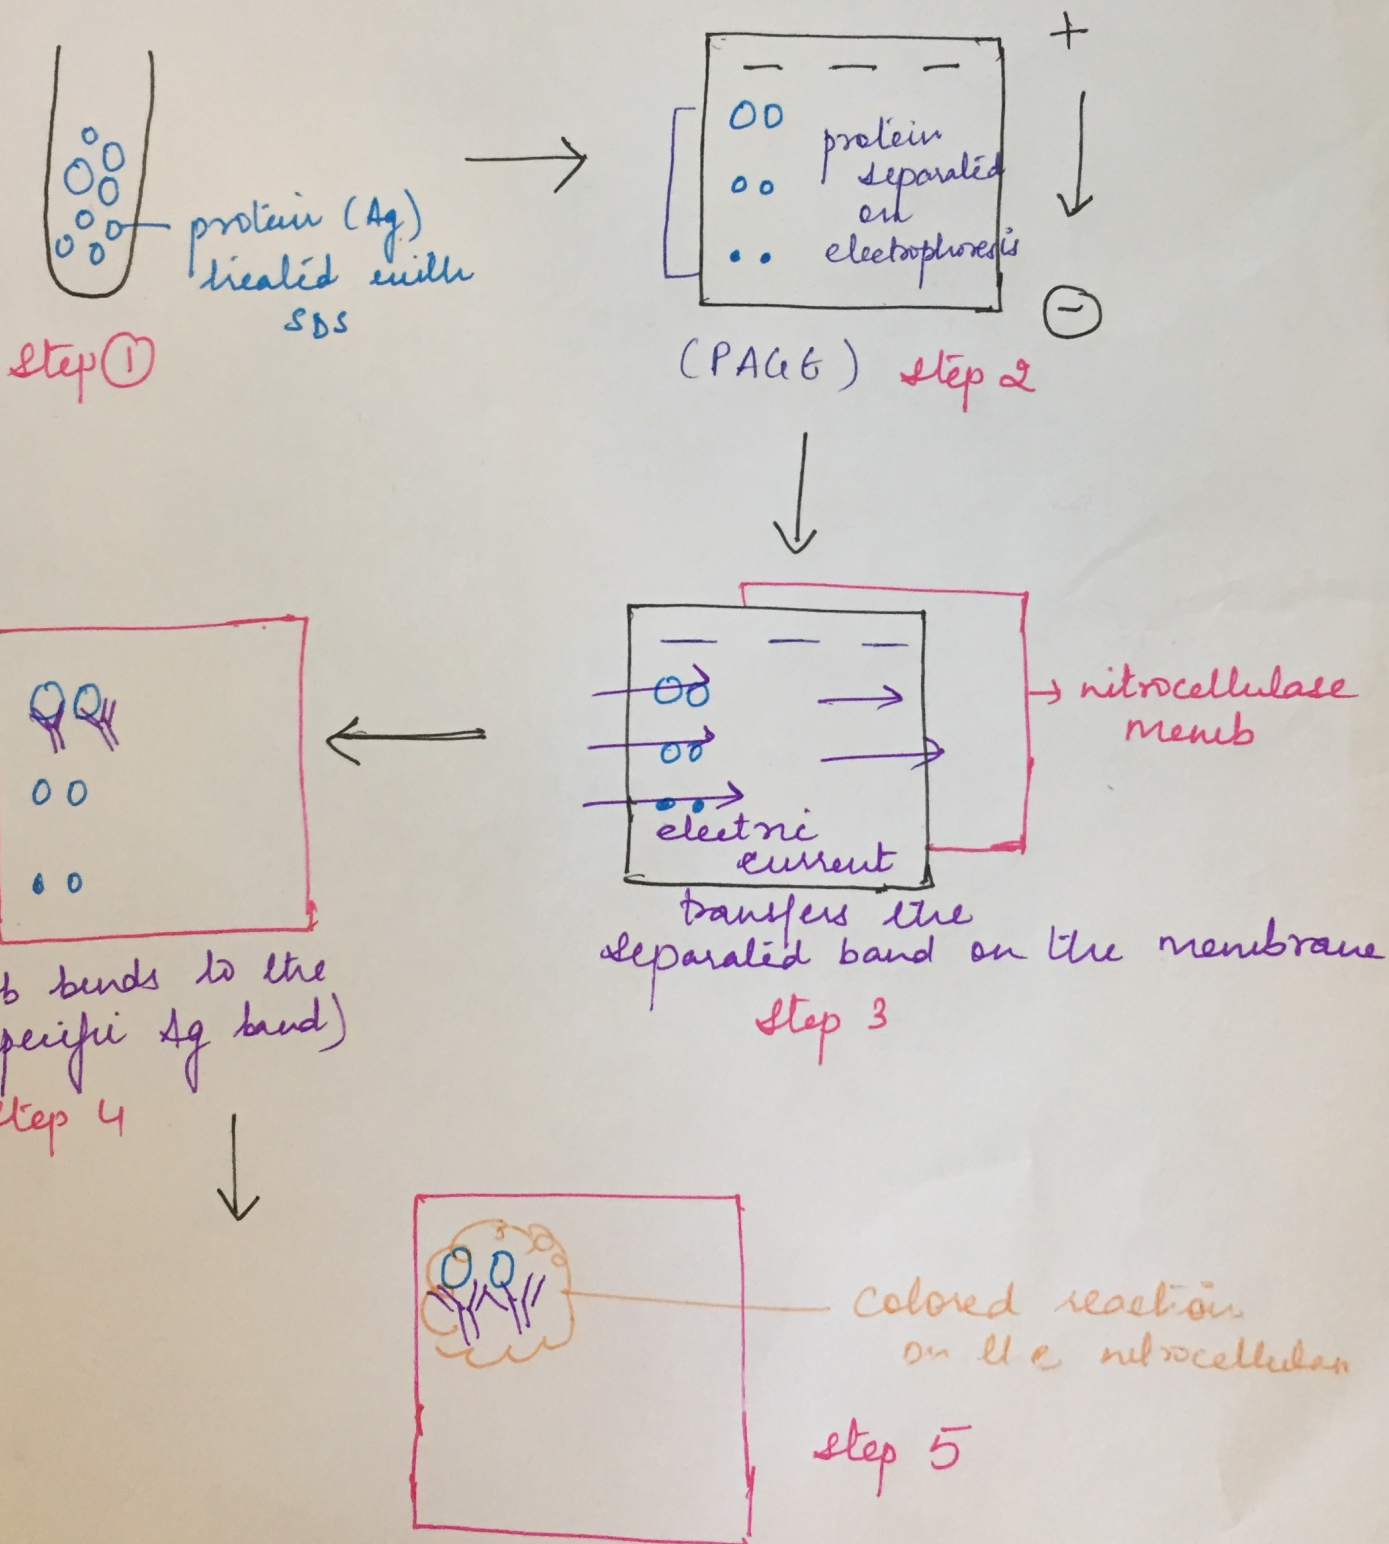 protein (Ag)
treated with
SDS
Step ①
+
protein
separated
on
electrophoresis
−
(PAGE)
Step 2
nitrocellulase
memb
electric
current
transfers the
separated band on the membrane
Step 3
b binds to the
pecific Ag band)
tep 4
Colored reaction
on the
Step 5